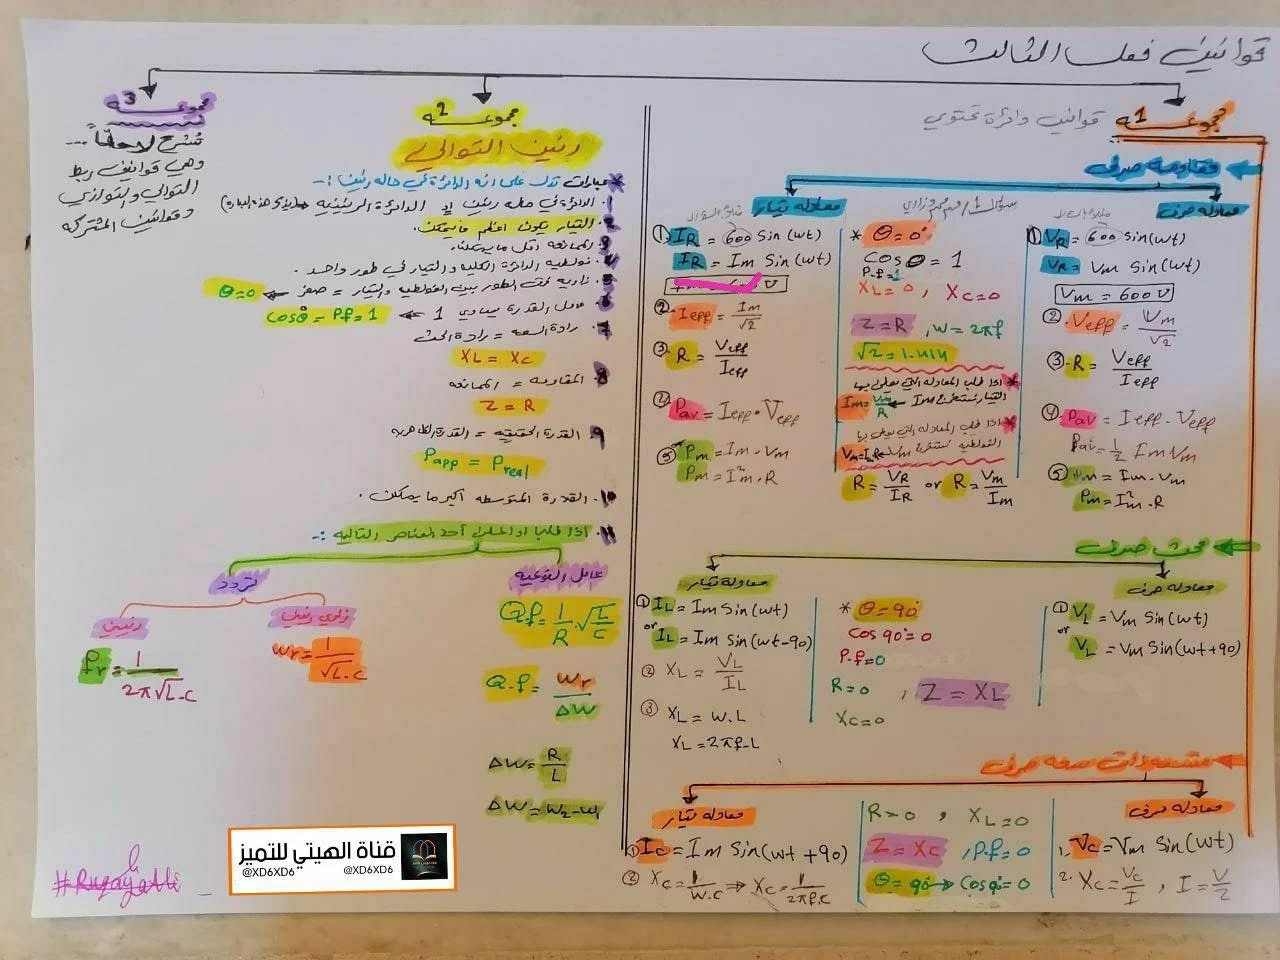 قوانين فصل الثالث
مجموعة 1
قوانين دائرة تحتوي
مقاومة صرف
معادلة فرق
① VR = 600 Sin(wt)
VR = Vm Sin(wt)
Vm = 600V
② Veff = Vm/√2
③ R = Veff/Ieff
④ Pav = Ieff · Veff
Pav = 1/2 Im Vm
⑤ Pm = Im · Vm
Pm = I²m · R
* θ = 0°
Cos θ = 1
P.f = 1
XL = 0 , XC = 0
Z = R , W = 2πf
√2 = 1.414
* اذا طلب المعادلة التي يعطى بها
التيار نستخرج Im ← Im = Vm/R
* اذا طلب المعادلة التي يعطى بها
الفولطية نستخرج Vm
R = VR/IR or R = Vm/Im
معادلة تيار
① IR = 600 Sin(wt)
IR = Im Sin(wt)
② Ieff = Im/√2
③ R = Veff/Ieff
Pav = Ieff · Veff
⑤ Pm = Im · Vm
Pm = I²m · R
محث صرف
معادلة فرق
① VL = Vm Sin(wt)
or
VL = Vm Sin(wt+90)
* θ = 90°
Cos 90° = 0
P.f = 0
R = 0 , Z = XL
XC = 0
معادلة تيار
① IL = Im Sin(wt)
or
IL = Im Sin(wt-90)
② XL = VL/IL
③ XL = W.L
XL = 2πf.L
متسعة ذات سعة صرف
معادلة فرق
1. VC = Vm Sin(wt)
2. XC = VC/I , I = V/Z
R = 0 , XL = 0
Z = XC , P.f = 0
θ = 90° → Cos 90° = 0
معادلة تيار
① IC = Im Sin(wt+90)
② XC = 1/W.C ⇒ XC = 1/2πf.C
مجموعة 2
رنين التوالي
* عبارات تدل على انه الدائرة في حالة رنين :-
1. الدائرة في حالة رنين او الدائرة الرنينية
2. التيار يكون اعظم ما يمكن.
3. الممانعة اقل ما يمكن.
4. فولطية الدائرة الكلية والتيار في طور واحد.
5. زاوية فرق الطور بين الفولطية والتيار = صفر ← θ = 0
6. عامل القدرة يساوي 1 ← Cos θ = P.f = 1
7. رادة السعة = رادة الحث
XL = XC
8. المقاومة = الممانعة
Z = R
9. القدرة الحقيقية = القدرة الظاهرية
Papp = Preal
10. القدرة المتوسطة اكبر ما يمكن.
11. اذا طلب او اعطى أحد العناصر التالية :-
عامل النوعية
Q.f = 1/R · √L/C
Q.f = Wr/ΔW
ΔW = R/L
ΔW = W2-W1
تردد
زاوي رنيني
Wr = 1/√L.C
رنيني
fr = 1/2π√L.C
مجموعة 3
تشرح لاحقاً ...
وهي قوانين ربط
التوالي والتوازي
وقوانين المشتركة
قناة الهيتي للتميز
@XD6XD6
@XD6XD6